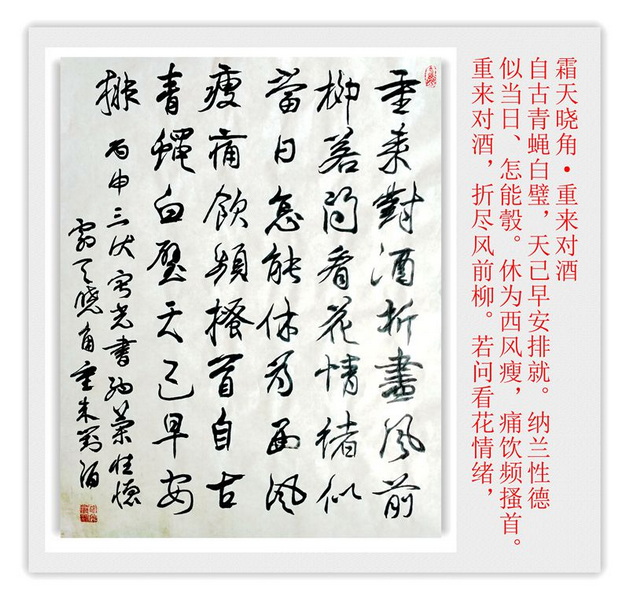 霜天晓角·重来对酒
自古青蝇白璧，天已早安排就。纳兰性德
似当日、怎能彀。休为西风瘦，痛饮频搔首。
重来对酒，折尽风前柳。若问看花情绪，
重来對酒折盡風前
柳若问看花情緒似
當日怎能休为西風
瘦痛飲頻搔首自古
青蠅白璧天已早安
排 丙申三伏 光書納蘭性德
霜天晓角重来對酒